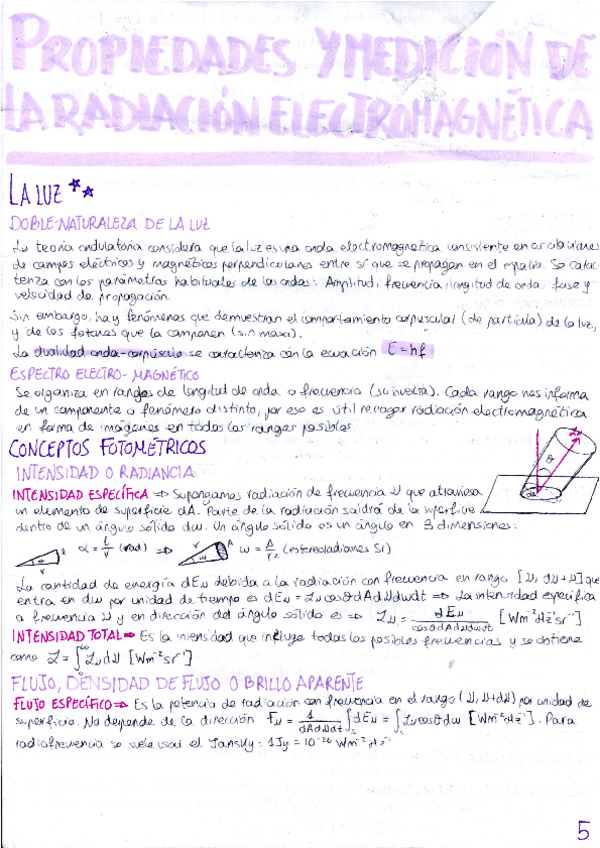 PROPIEDADES Y MEDICIÓN DE
LA RADIACIÓN ELECTROMAGNÉTICA
LA LUZ
DOBLE NATURALEZA DE LA LUZ
La teoría ondulatoria considera que la luz es una onda electromagnética consistente en oscilaciones
de campos eléctricos y magnéticos perpendiculares entre sí que se propagan en el espacio. Se carac-
teriza con los parámetros habituales de las ondas: Amplitud, frecuencia, longitud de onda, fase y
velocidad de propagación.
Sin embargo, hay fenómenos que demuestran el comportamiento corpuscular (de partícula) de la luz,
y de los fotones que la componen (sin masa).
La dualidad onda-corpúsculo se caracteriza con la ecuación E=hf
ESPECTRO ELECTRO-MAGNÉTICO
Se organiza en rangos de longitud de onda o frecuencia (su inversa). Cada rango nos informa
de un componente o fenómeno distinto, por eso es útil recoger radiación electromagnética
en forma de imágenes en todos los rangos posibles.
CONCEPTOS FOTOMÉTRICOS
INTENSIDAD O RADIANCIA
INTENSIDAD ESPECÍFICA ⇒ Supongamos radiación de frecuencia ν que atraviesa
un elemento de superficie dA. Parte de la radiación saldrá de la superficie
dentro de un ángulo sólido dω. Un ángulo sólido es un ángulo en 3 dimensiones:
α = l/r (rad) ⇒ ω = A/r² (estereoradianes Sr)
La cantidad de energía dEν debida a la radiación con frecuencia en rango [ν, dν+ν] que
entra en dω por unidad de tiempo es dEν = Iν cosθ dA dν dω dt ⇒ La intensidad específica
a frecuencia ν y en dirección del ángulo sólido es ⇒ Iν = dEν / cosθ dA dν dω dt [Wm⁻²Hz⁻¹sr⁻¹]
INTENSIDAD TOTAL ⇒ Es la intensidad que incluye todas las posibles frecuencias y se obtiene
como I = ∫₀^∞ Iν dν [Wm⁻²sr⁻¹]
FLUJO, DENSIDAD DE FLUJO O BRILLO APARENTE
FLUJO ESPECÍFICO ⇒ Es la potencia de radiación con frecuencia en el rango (ν, ν+dν) por unidad de
superficie. No depende de la dirección Fν = 1/(dA dν dt) ∫s dEν = ∫s Iν cosθ dω [Wm⁻²Hz⁻¹]. Para
radiofrecuencia se suele usar el Jansky: 1Jy = 10⁻²⁶ Wm⁻²Hz⁻¹
5